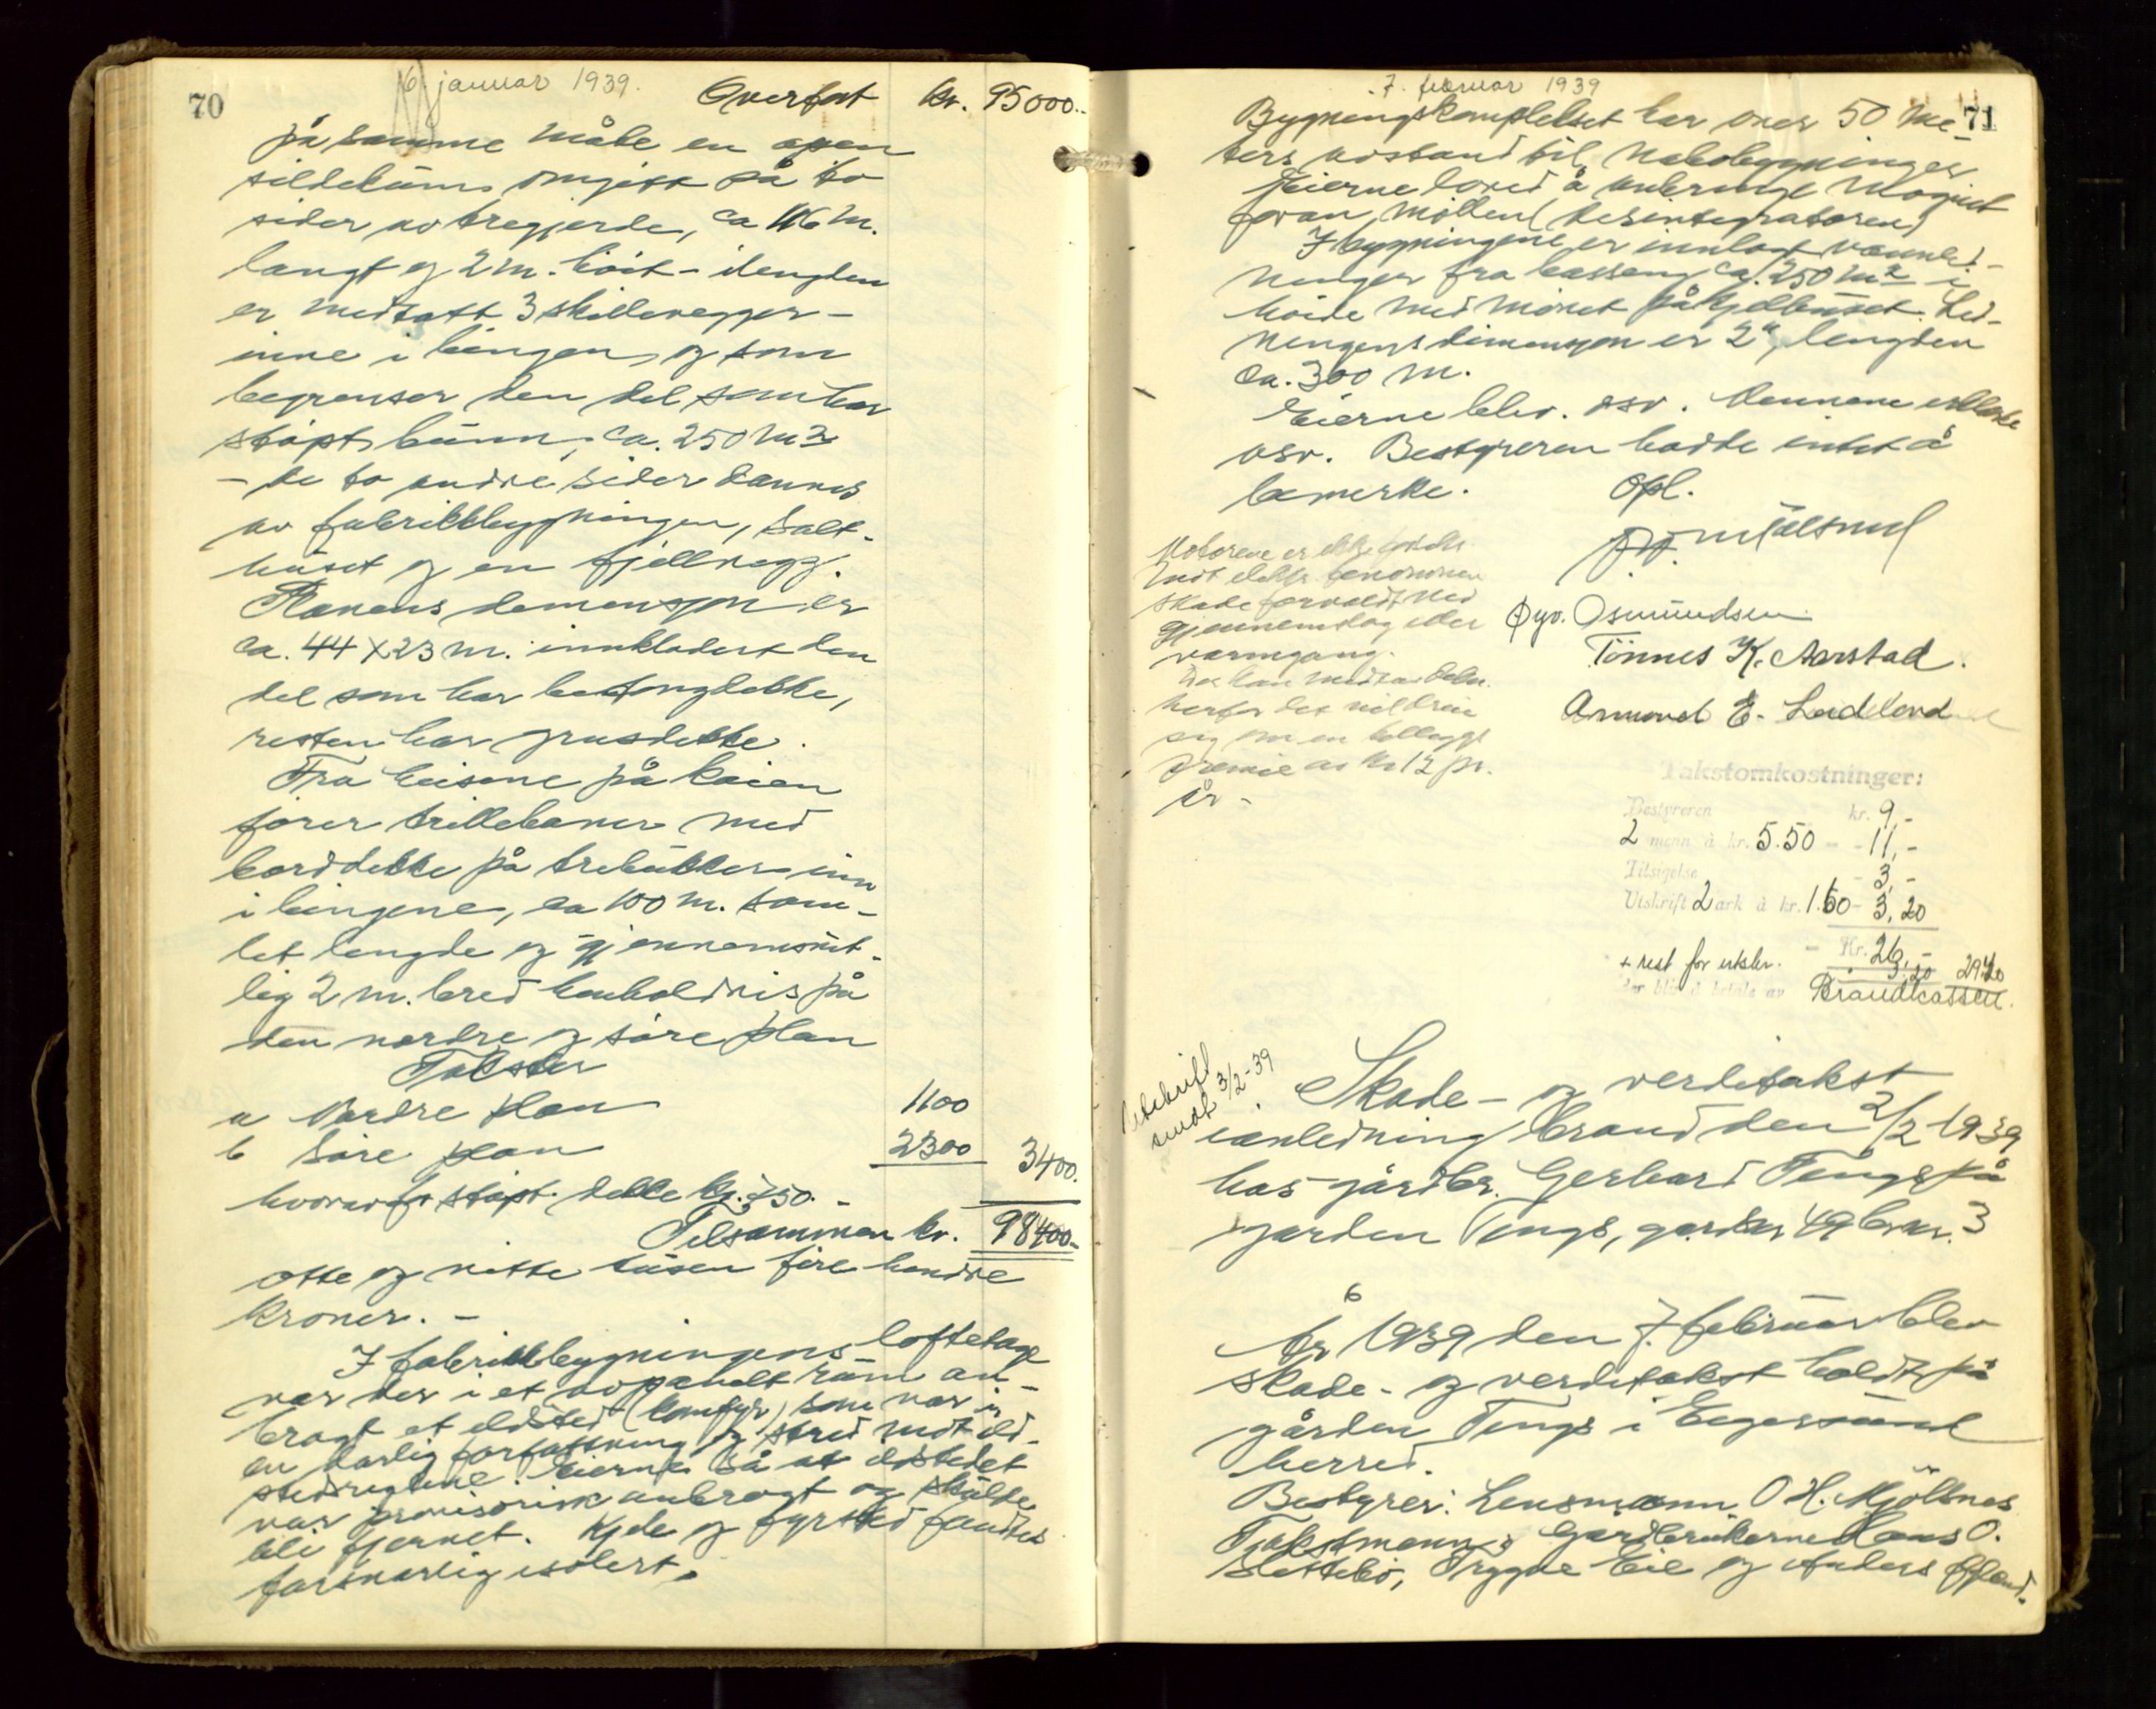 70
6 januar 1939.
Overført kr. 95000.-
på samme måte en open
sildebinge omgitt på to
sider av tregjerde, ca 116 m.
langt og 2 m. höit - i lengden
er medtatt 3 skillevegger -
inne i bingen og som
begrenser den del som har
stöpt bunn, ca. 250 m2
- de to andre sider dannes
av fabrikkbygningen, salt-
huset og en fjellvegg.
Planens dimensjon er
ca. 44 x 23 m. innkludert den
del som har betongdekke,
resten har grusdekke.
Fra heisene på kaien
förer trillebaner med
borddekke på trebukker inn
i bingene, ca 100 m. sam-
let lengde og gjennemsnit-
lig 2 m. bred henholdsvis på
den nordre og söre plan
Takster
a Nordre plan 1100
b Söre plan 2300 3400.
hvorav for stöpt dekke kr. 750.-
Tilsammen kr. 98400.-
otte og nitti tusen fire hundre
kroner. -
I fabrikkbygningens loftetage
var der i et avpanelt rum an-
bragt et ildsted (komfyr) som var i
en dårlig forfatning og stred mot ild-
stedsreglene. Eierne sa at ildstedet
var provisorisk anbragt og skulde
bli fjernet. Kjele og fyrsted fandtes
forsvarlig isolert.
71
7. februar 1939
Bygningskomplekset har over 50 me-
ters avstand til nabobygninger
Eierne lovet å anbringe magnet
foran möllen (desintegratoren)
I bygningene er innlagt vannled-
ninger fra basseng ca. 250 m2 i
höide med mönet på kjelhuset. Led-
ningens dimensjon er 2", lengden
ca. 300 m.
Eierne blev. osv. Mennene erklærte
osv. Bestyreren hadde intet å
bemerke. Opl.
Motorene er ikke
mot elektr. fenomener
skade forvoldt ved
gjennemslag eller
varmgang.
Det kan medtas
herfor det vil dreie
sig om en tilleggs
premie av kr 12 pr.
år -
Osmundsen
Tönnes K. Aarstad.
Takstomkostninger:
Bestyreren kr. 9,-
2 menn à kr. 5.50 - 11,-
Tilsigelse - 3,-
Utskrift 2 ark à kr. 1.60 - 3,20
Kr. 26,-
+ rest for utskr. 3.20 29.20
der blir å betale av Brandkassen.
Utskrift
sendt 3/2-39
Skade- og verditakst
i anledning brand den 2/2 1939
hos gårdbr. Gerhard Tengs på
garden Tengs, gardsnr 49 bruksnr. 3
6
År 1939 den 7. februar blev
skade- og verditakst holdt på
gården Tengs i Eigersund
herred.
Bestyrer: Lensmann O H. Mjölsnes
Takstmenn: Gårdbrukerne Hans O.
Slettebö, Trygve Eie og Anders